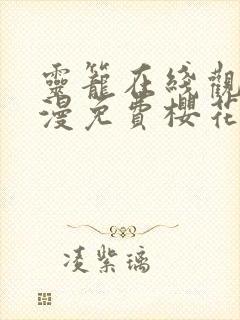 靈籠在綫觀
漫免費櫻花
凌紫璃